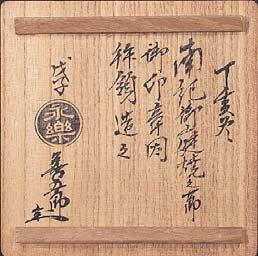 丁亥冬
南紀御庭焼之節
御印章因
拝領造之
戊子
永樂
善五郎造